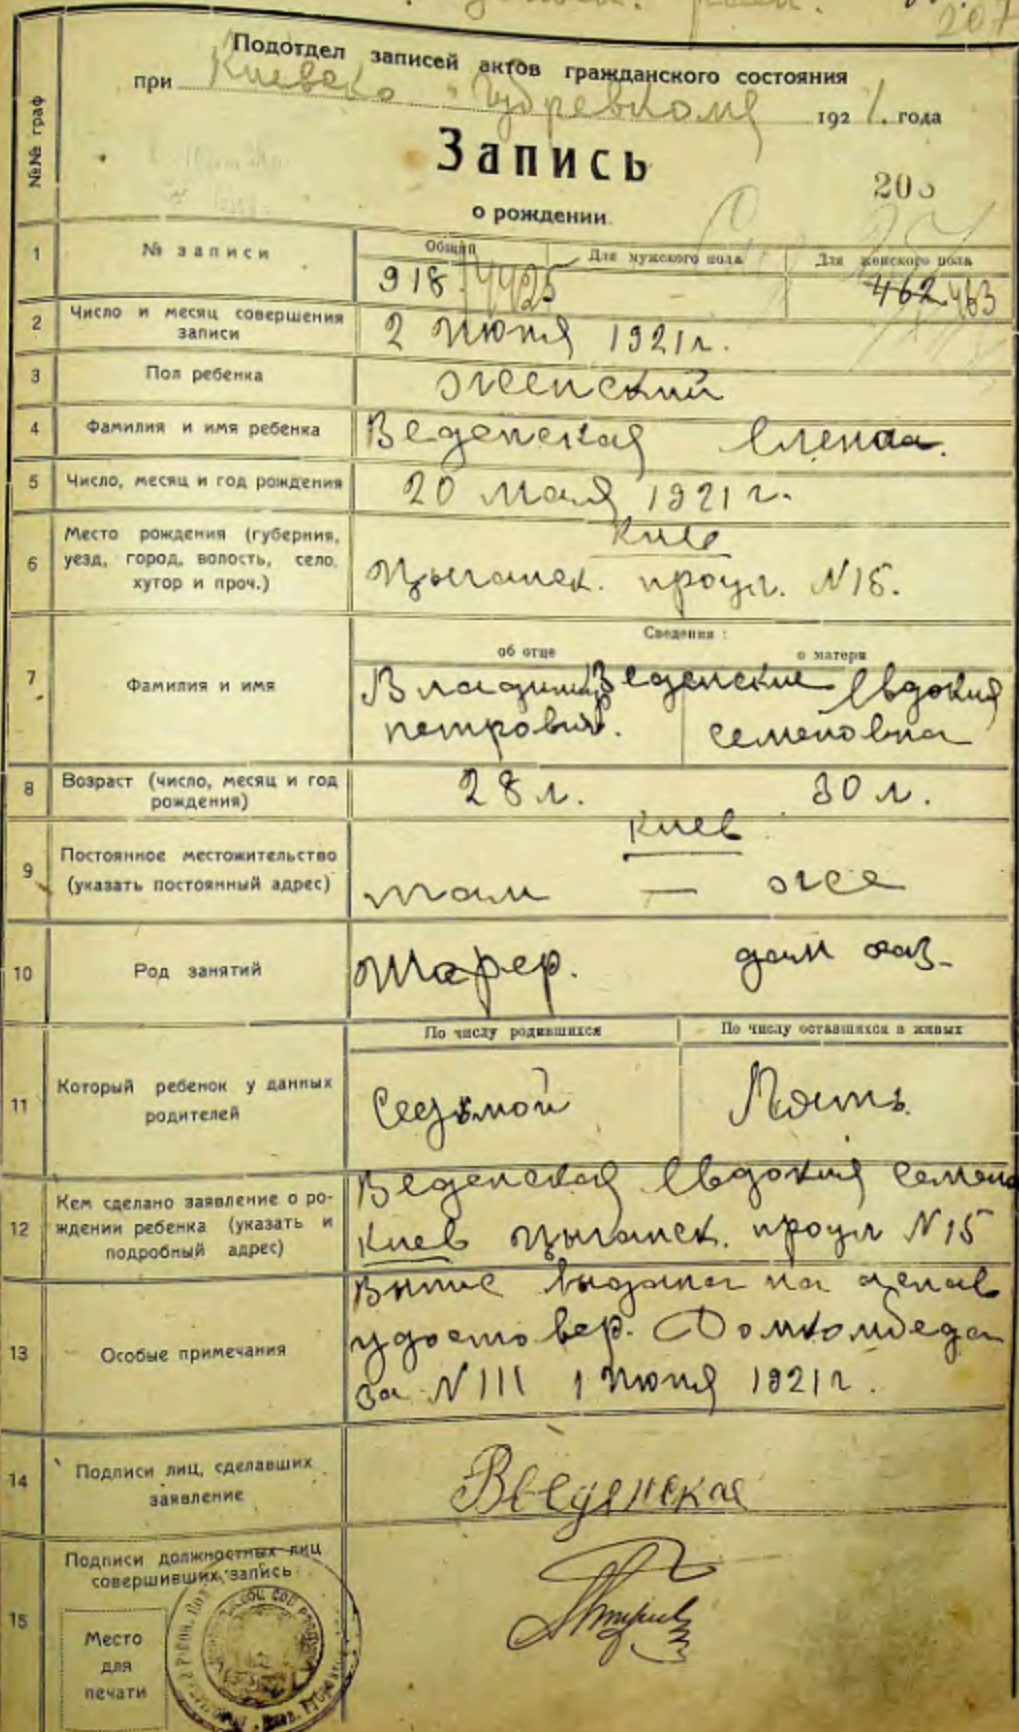 207
Подотдел записей актов гражданского состояния
при Киевско Губревкоме 1921. года
№№ граф
Запись
205
о рождении.
1 № записи Общий Для мужского пола Для женского пола
918 4425 — 462 463
2 Число и месяц совершения записи
2 июня 1921 г.
3 Пол ребенка женский
4 Фамилия и имя ребенка Веденская Елена.
5 Число, месяц и год рождения 20 мая 1921 г.
6 Место рождения (губерния, уезд, город, волость, село, хутор и проч.)
Киев
Цыганск. проул. N15.
Сведения:
об отце о матери
7 Фамилия и имя Владимир Веденские Евдокия
петрович. семеновна
8 Возраст (число, месяц и год рождения)
28 л. 30 л.
9 Постоянное местожительство (указать постоянный адрес)
Киев
там — же
10 Род занятий Шофер. дом хаз.
По числу родившихся По числу оставшихся в живых
11 Который ребенок у данных родителей
Седьмой Пять
12 Кем сделано заявление о рождении ребенка (указать и подробный адрес)
Веденская Евдокия семено
Киев Цыганск. проул N15
13 Особые примечания
Выпис выдана на
удостовер. Домкомбеда
за N111 1 июня 1921 г.
14 Подписи лиц, сделавших заявление
Введенская
15 Подписи должностных лиц совершивших запись
Место
для
печати